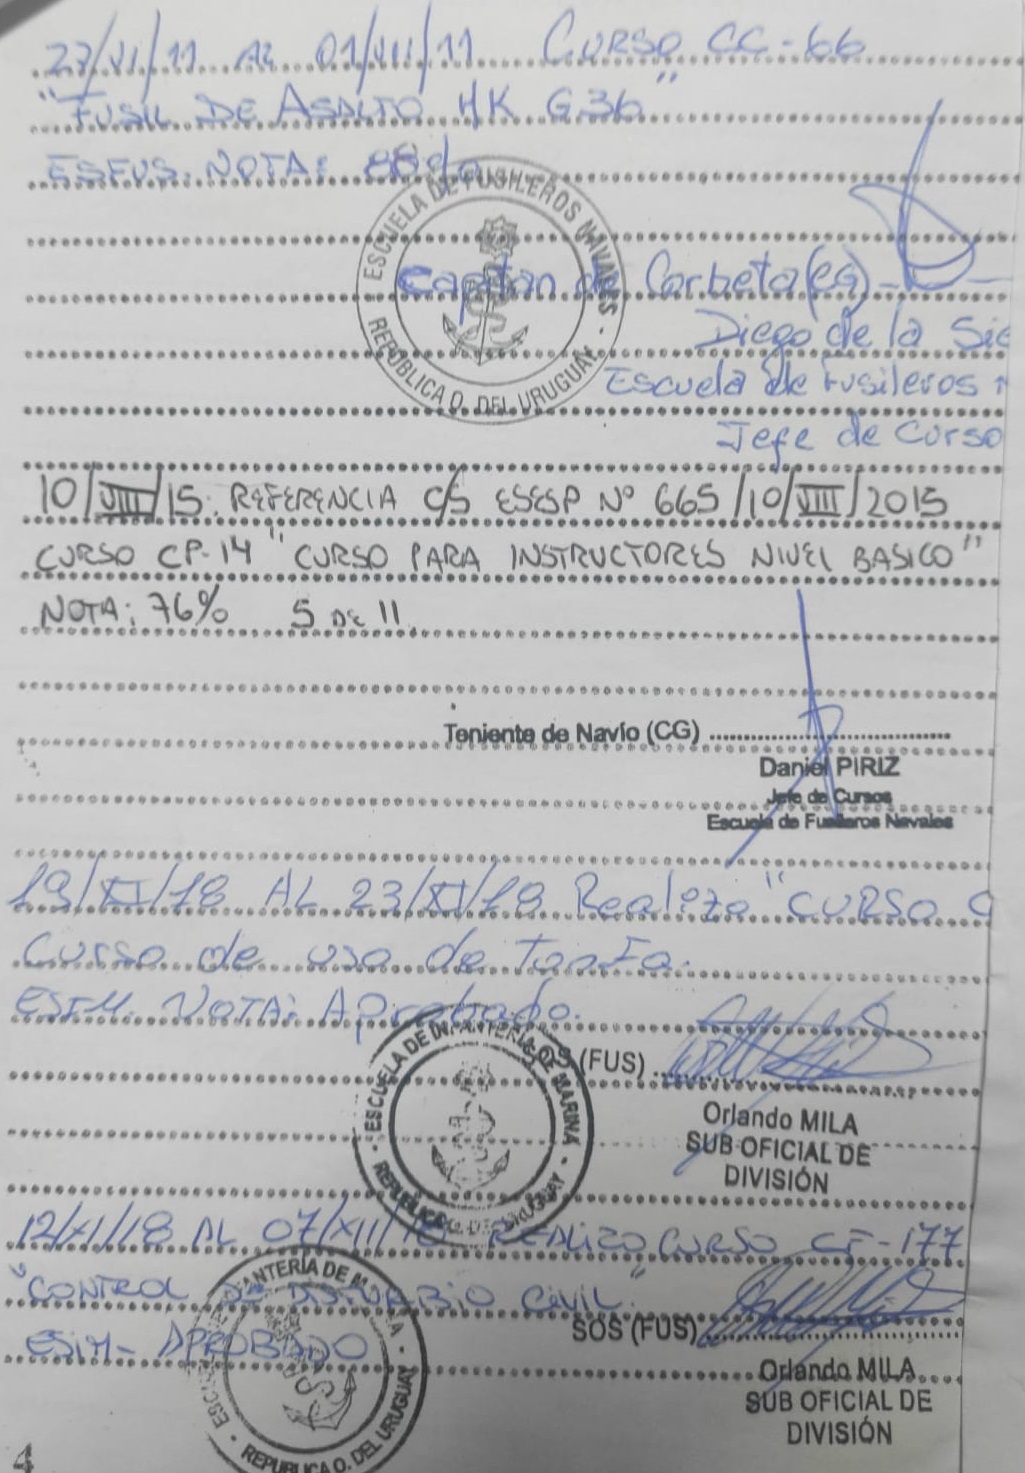 27/VI/11 AL 01/VII/11 CURSO CC-66
"FUSIL DE ASALTO HK G36"
ESFUS. NOTA: 88%
ESCUELA DE FUSILEROS NAVALES · REPUBLICA O. DEL URUGUAY
Capitan de Corbeta (CG)
Diego de la Sie
Escuela de Fusileros
Jefe de Curso
10/VIII/15. REFERENCIA C/S ESESP Nº 665/10/VIII/2015
CURSO CP-14 "CURSO PARA INSTRUCTORES NIVEL BASICO"
NOTA: 76% 5 DE 11.
Teniente de Navío (CG)
Daniel PIRIZ
Jefe de Cursos
Escuela de Fusileros Navales
19/XI/18 AL 23/XI/18 Realizo "CURSO C
Curso de uso de Tonfa.
ESIM. NOTA: Aprobado.
ESCUELA DE INFANTERIA DE MARINA · REPUBLICA O. DEL URUGUAY
SOS (FUS)
Orlando MILA
SUB OFICIAL DE
DIVISIÓN
12/XI/18 AL 07/XII/18 REALIZO CURSO CF-177
"CONTROL DE DISTURBIO CIVIL."
ESIM- APROBADO
SOS (FUS)
ESCUELA DE INFANTERIA DE MARINA · REPUBLICA O. DEL URUGUAY
Orlando MILA
SUB OFICIAL DE
DIVISIÓN
4